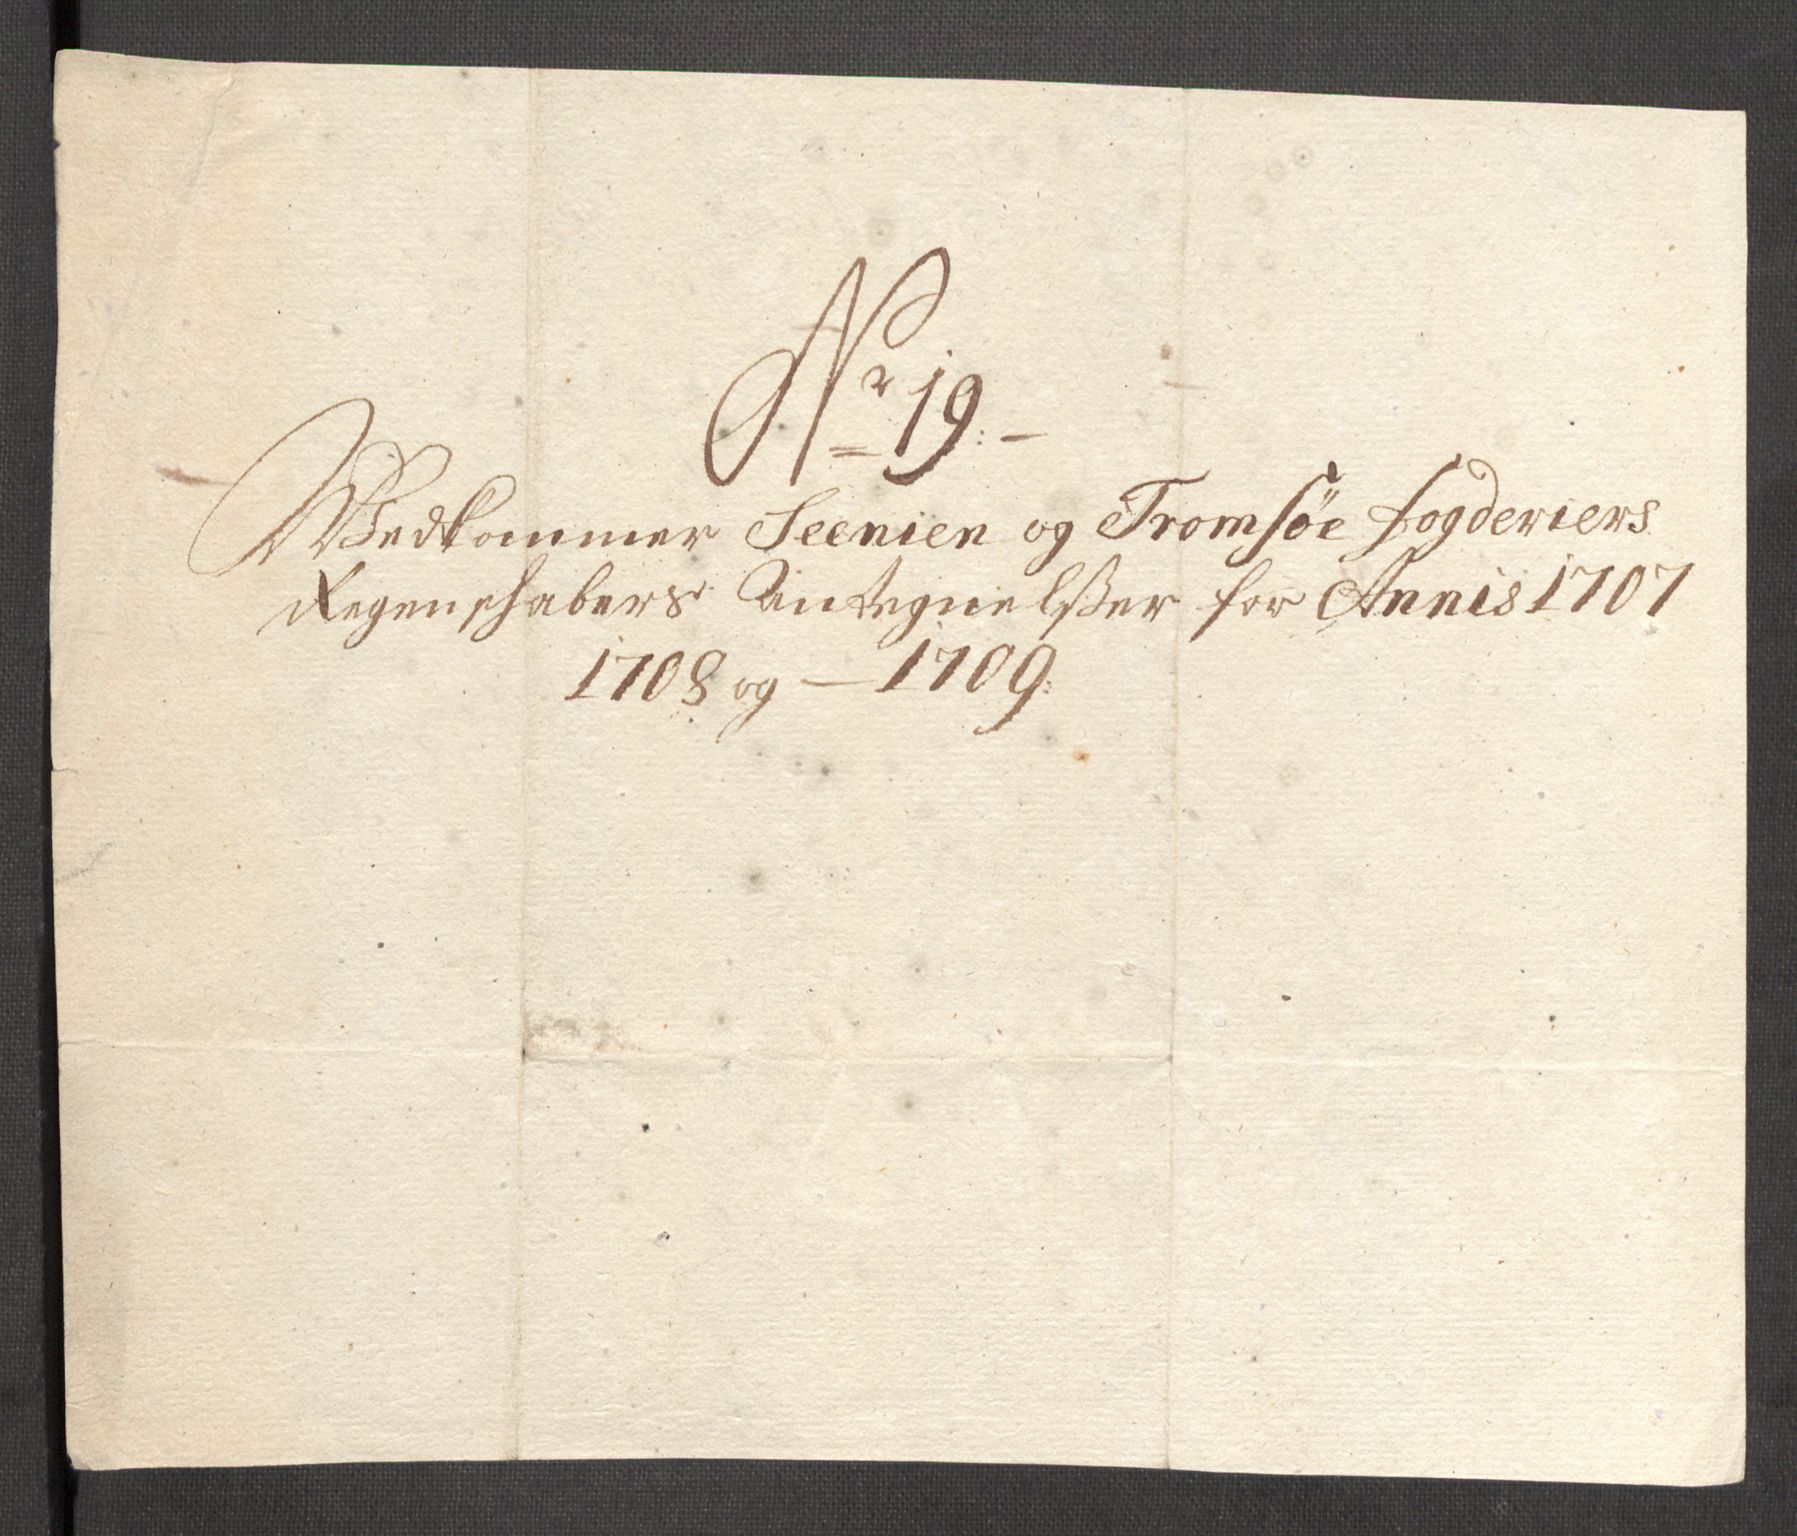 Nr 19:—
Vedkommer Seenien og Tromsøe fogderiers
Regenschabers Antegnelsser for Annis 1707
1708 og — 1709: